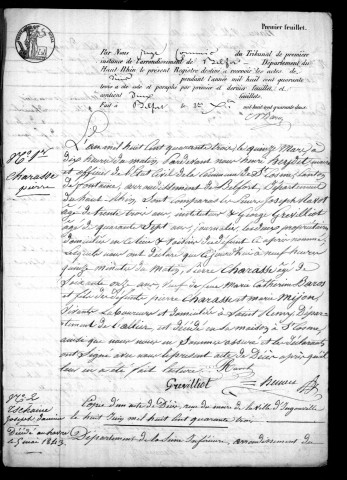 Premier feuillet.
Par Nous Juge Commis du Tribunal de première
instance de l'arrondissement de Belfort, Département du
Haut Rhin le présent Registre destiné à recevoir les actes de
pendant l'année mil huit cent quarante
trois a été coté et paraphé par premier et dernier feuillet, et
contient Deux feuillets.
Fait à Belfort le Xbre mil huit cent quarante deux
N° 1er
Charasse
pierre
L'an mil huit Cent quarante trois, le quinze Mars, à
dix heures du matin, Pardevant nous henri heyset maire
et officier de l'état Civil de la Commune de St Cosme, Canton
de fontaine, arrondissement de Belfort, Département
du haut-Rhin, sont comparus les Sieurs Joseph
âgé de trente trois ans instituteur & George Grevillot
âgé de quarante Sept ans, journalier, les deux propriétaires
domiciliés en ce lieu & voisins du défunt ci après nommé,
lesquels nous ont déclaré que ce jourd'hui à neuf heures
quinze minutes du matin, Pierre Charasse, âgé de
Soixante onze ans, Veuf de feue Marie Catherine Baros
et fils de defunts pierre Charasse et marie Mijon,
et domicilié à Saint Remy, Dépar-
tement de l'allier, est décédé en la maison, à St Cosme,
ainsi que nous nous en Sommes assuré et les déclarants
ont Signé avec nous le présent acte de Décès après qu'il
leur en a été fait lecture.
Grevillot
N° 2
Eschame
Joseph Damien
Décédé au havre
le 5 mai 1843
Copie d'un acte de Décès, aux du mairie de la Ville d'Ingouville
le huit Juin mil huit cent quarante trois
Département de la Seine Inférieure, arrondissement du